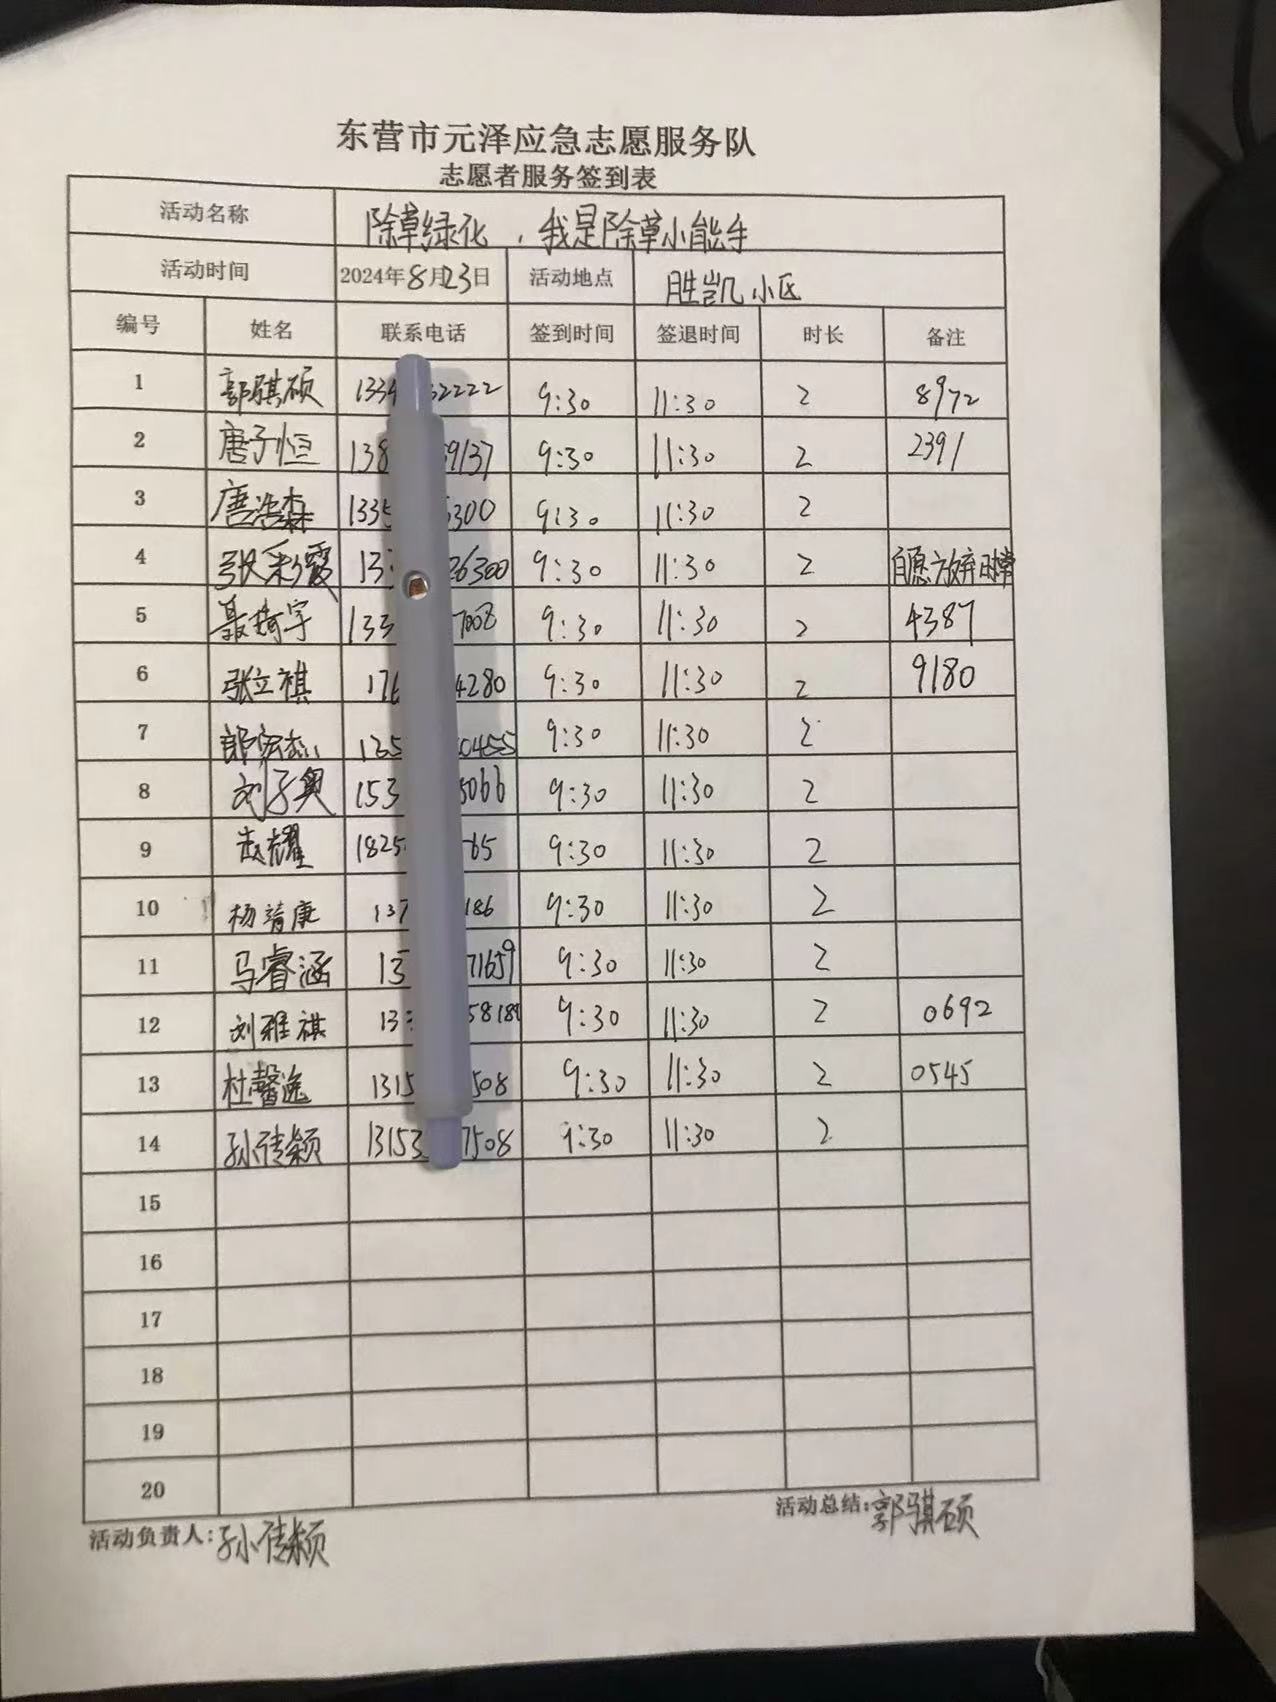 东营市元泽应急志愿服务队
志愿者服务签到表
活动名称 除草绿化，我是除草小能手
活动时间 2024年8月23日 活动地点 胜凯小区
编号 姓名 联系电话 签到时间 签退时间 时长 备注
1 郭骐硕 133 2222 9:30 11:30 2 8972
2 唐子恒 138 9137 9:30 11:30 2 2391
3 唐浩森 133 300 9:30 11:30 2
4 张彩霞 13 26300 9:30 11:30 2 自愿放弃时常
5 聂琦宇 133 7008 9:30 11:30 2 4387
6 张立祺 176 4280 9:30 11:30 2 9180
7 郎宏杰 135 0455 9:30 11:30 2
8 刘子奥 153 5066 9:30 11:30 2
9 赵耀 1825 65 9:30 11:30 2
10 杨靖康 137 186 9:30 11:30 2
11 马睿涵 13 71659 9:30 11:30 2
12 刘雅祺 13 5818 9:30 11:30 2 0692
13 杜馨逸 1315 508 9:30 11:30 2 0545
14 孙倩颖 13153 7508 9:30 11:30 2
15
16
17
18
19
20
活动负责人：孙倩颖 活动总结：郭骐硕